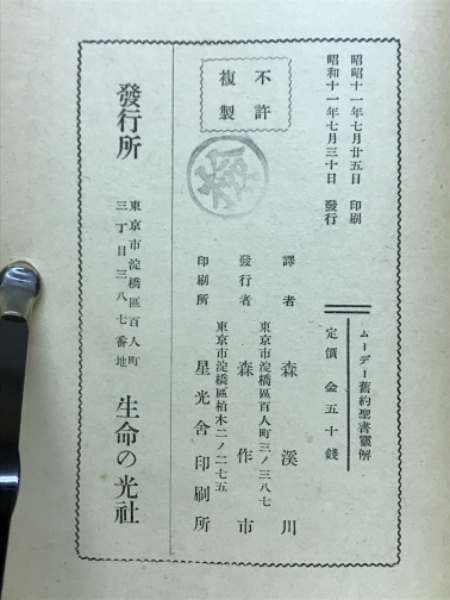 昭昭十一年七月廿五日 印刷
昭和十一年七月三十日 發行
不許
複製
ムーデー舊約聖書靈解
定價 金五十錢
譯者 森溪川
東京市淀橋區百人町三ノ三八七
發行者 森作市
東京市淀橋區柏木二ノ二七五
印刷所 星光舍印刷所
發行所
東京市淀橋區百人町
三丁目三八七番地
生命の光社